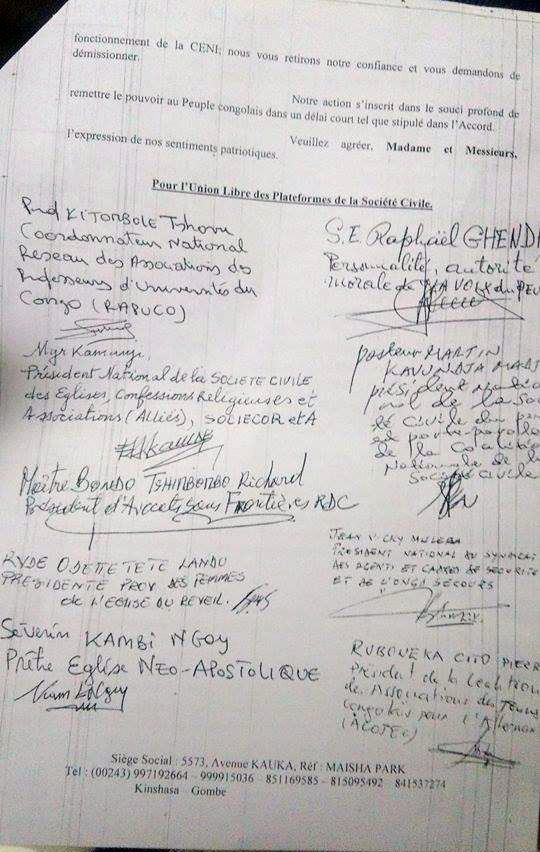 fonctionnement de la CENI; nous vous retirons notre confiance et vous demandons de
démissionner.
Notre action s'inscrit dans le souci profond de
remettre le pouvoir au Peuple congolais dans un délai court tel que stipulé dans l'Accord.
Veuillez agréer, Madame et Messieurs,
l'expression de nos sentiments patriotiques.
Pour l'Union Libre des Plateformes de la Société Civile.
KITOMBOLE Tshovu
Coordonnateur National
Reseau des Associations des
Professeurs d'Universités du
Congo (RAPUCO)
Mgr Kamunga,
Président National de la SOCIETE CIVILE
des Eglises, Confessions Religieuses et
Associations (Alliés), SOCIECOR et A
Maître BONDO TSHIMBOMBO Richard
Président d'Avocats sans Frontières RDC
ODETTE TETE LANDU
PRESIDENTE PROV DES FEMMES
de L'EGLISE DU REVEIL.
Séverin KAMBI NGOY
Prêtre Eglise NEO-APOSTOLIQUE
S.E. Raphaël GHENDA
Personnalité, autorité
morale de LA VOIX du PEU
pasteur MARTIN
président
de la So
Civile
et porte parole
de la
Nationale de la
Société Civile
PRESIDENT NATIONAL DU SYNDICAT
DES AGENTS ET CADRES DE SECURITE
ET DE L'ONGD SECOURS
CITO PIERR
Président de la
des Associations des
congolais pour
Siège Social : 5573, Avenue KAUKA, Réf : MAISHA PARK
Tel : (00243) 997192664 – 999915036 – 851169585 – 815095492 841537274
Kinshasa Gombe